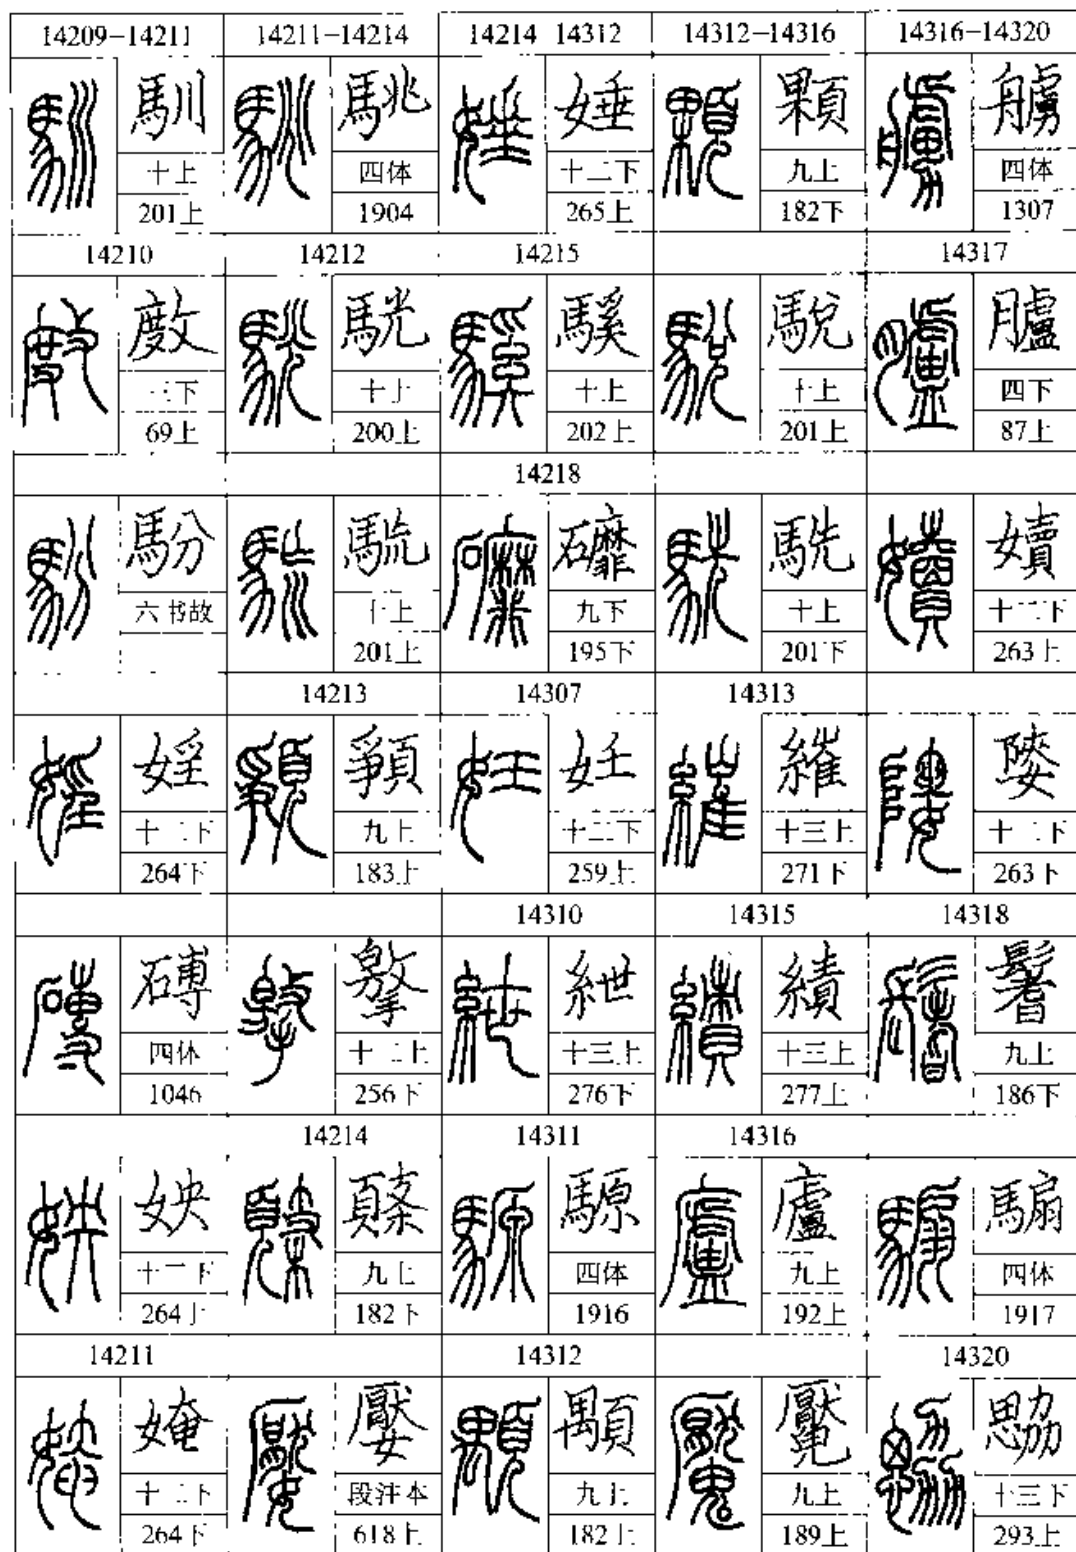 14209–14211
馴
十上
201上
14210
三下
69上
馚
六书故
婬
十二下
264下
四体
1046
姎
十二下
264上
14211
㛪
十二下
264下
14211–14214
駣
四体
1904
14212
駫
十上
200上
十上
201上
14213
九上
183上
十二上
256下
14214
九上
182下
嬮
段注本
618上
14214 14312
娷
十二下
265上
14215
騱
十上
202上
14218
䃺
九下
195下
14307
妊
十二下
259上
14310
紲
十三上
276下
14311
騵
四体
1916
14312
顒
九上
182上
14312–14316
顆
九上
182下
駾
十上
201上
駪
十上
201下
14313
繀
十三上
271下
14315
績
十三上
277上
14316
廬
九上
192上
魘
九上
189上
14316–14320
艣
四体
1307
14317
臚
四下
87上
嬻
十二下
263上
十二下
263下
14318
鬐
九上
186下
騸
四体
1917
14320
勰
十三下
293上